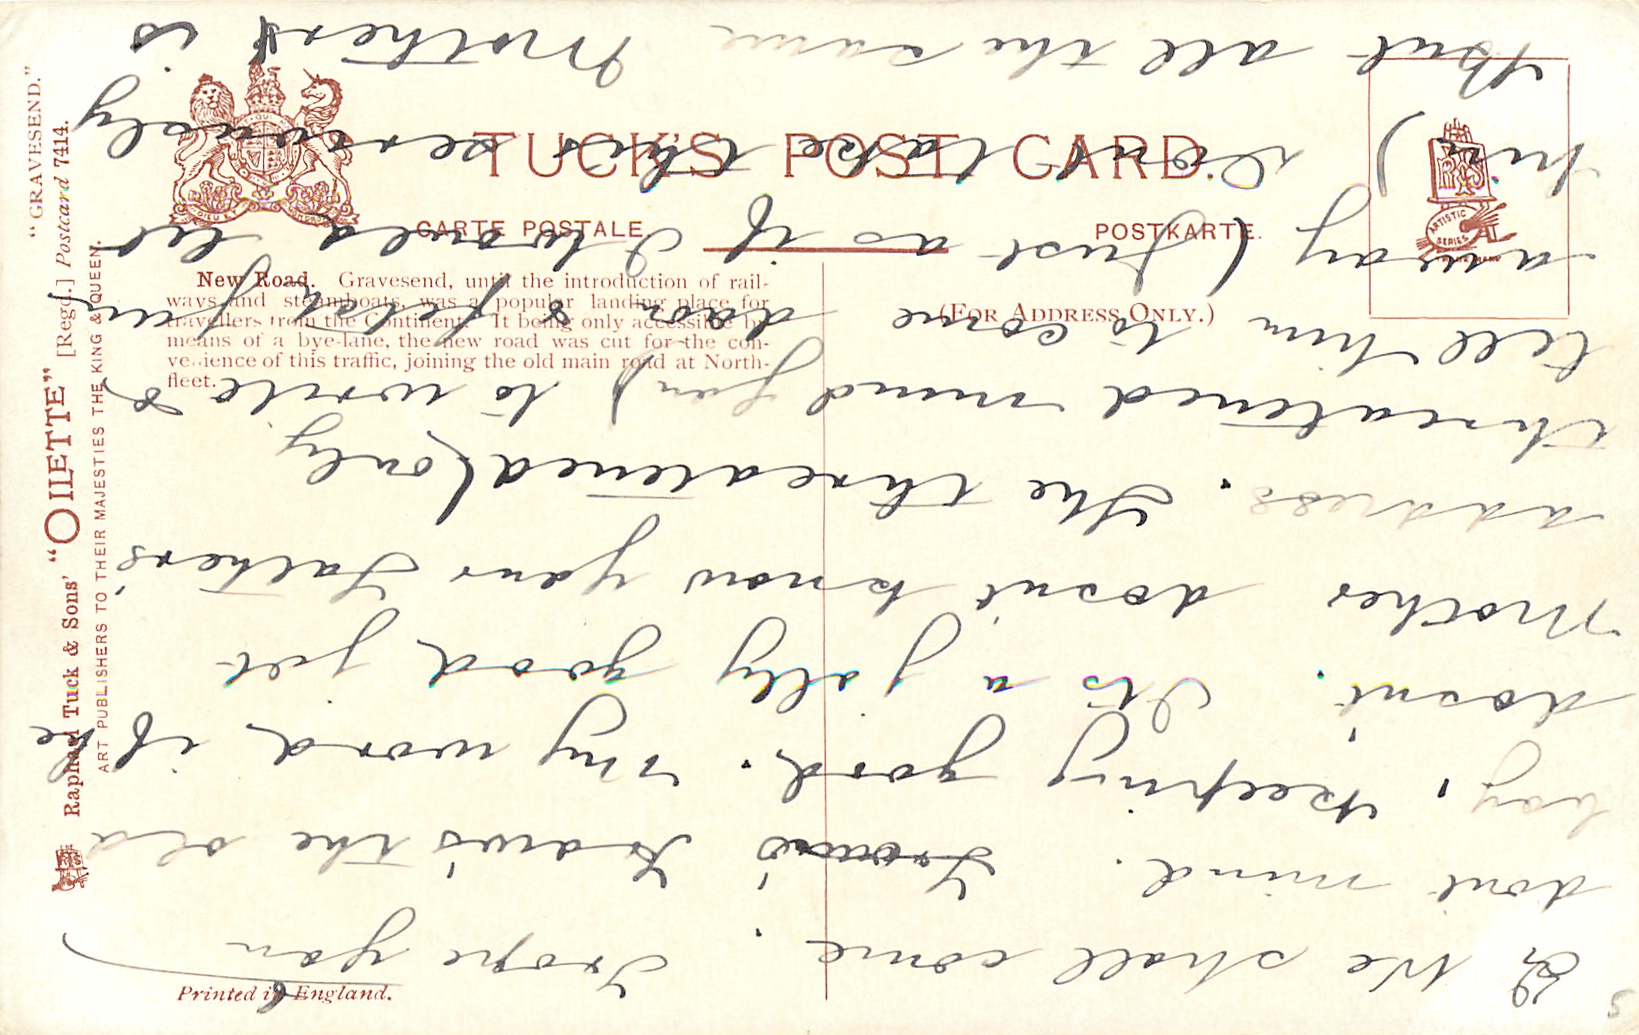 "GRAVESEND."
Raphael Tuck & Sons' "OILETTE" [Regd.] Postcard 7414.
ART PUBLISHERS TO THEIR MAJESTIES THE KING & QUEEN.
TUCK'S POST CARD.
CARTE POSTALE
POSTKARTE.
(FOR ADDRESS ONLY.)
ARTISTIC
SERIES
New Road. Gravesend, until the introduction of rail-
ways and steamboats, was a popular landing place for
travellers from the Continent. It being only accessible by
means of a bye-lane, the new road was cut for the con-
venience of this traffic, joining the old main road at North-
fleet.
Printed in England.
2) We shall come. Hope you
dont mind. How's the old
boy, keeping good. My word, if he
dosnt. Its a jolly good job
Mother dosnt know your Fathers'
address. She threatened (only
threatened mind you) to write &
tell him to come down & fetch you
away (Just as if I would let
him) Dont take this seriously
But all the same Mother is